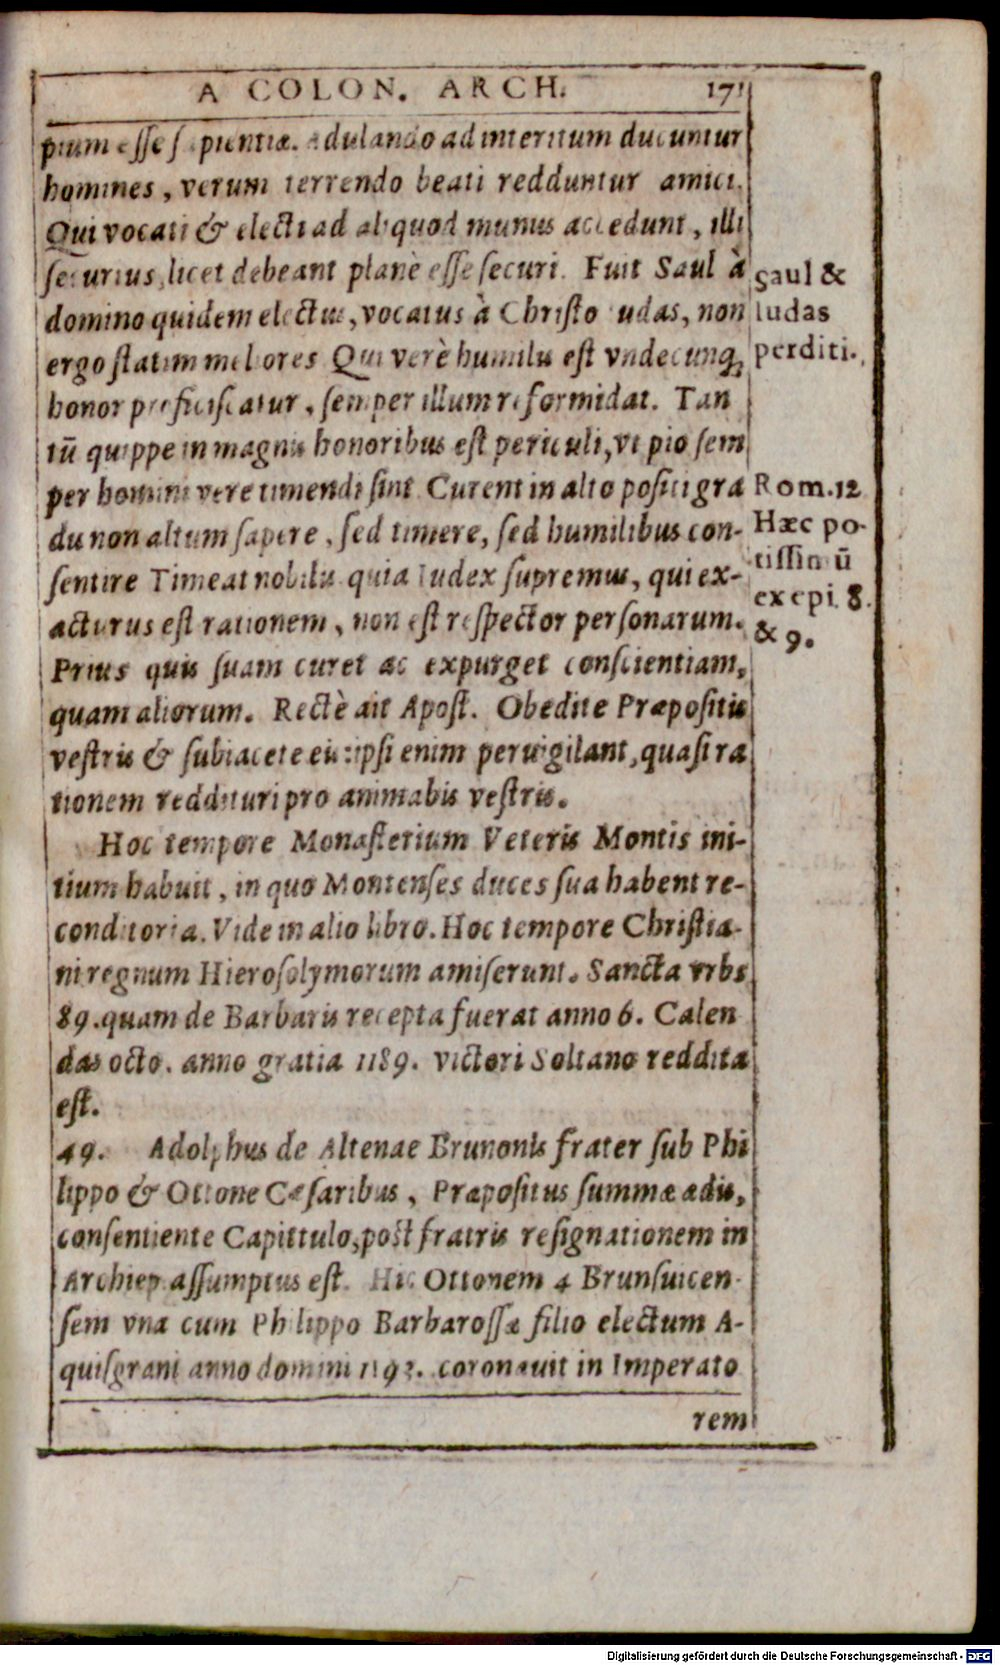 A COLON. ARCH. 171
pium esse sapientiæ. Adulando ad interitum ducuntur
homines, verum terrendo beati redduntur amici.
Qui vocati & electi ad aliquod munus accedunt, illi
securius, licet debeant planè esse securi. Fuit Saul à
domino quidem electus, vocatus à Christo Iudas, non
ergo statim meliores Qui verè humilis est vndecunq;
honor proficiscatur, semper illum reformidat. Tan
tū quippe in magnis honoribus est periculi, vt pio sem
per homini vere timendi sint Curent in alto positi gra
du non altum sapere, sed timere, sed humilibus con-
sentire Timeat nobilis quia Iudex supremus, qui ex-
acturus est rationem, non est respector personarum.
Prius quis suam curet ac expurget conscientiam,
quam aliorum. Rectè ait Apost. Obedite Præpositis
vestris & subiacete eis: ipsi enim peruigilant, quasi ra
tionem reddituri pro animabis vestris.
Hoc tempore Monasterium Veteris Montis ini-
tium habuit, in quo Montenses duces sua habent re-
conditoria. Vide in alio libro. Hoc tempore Christia-
ni regnum Hierosolymorum amiserunt. Sancta vrbs
89. quam de Barbaris recepta fuerat anno 6. Calen
das octo. anno gratia 1189. victori Soltano reddita
est.
49. Adolphus de Altenae Brunonis frater sub Phi
lippo & Ottone Cæsaribus, Præpositus summæ ædis,
consentiente Capittulo, post fratris resignationem in
Archiep. assumptus est. Hic Ottonem 4 Brunsuicen-
sem vna cum Philippo Barbarossæ filio electum A-
quisgrani anno domini coronauit in Imperato
rem
Saul &
Iudas
perditi.
Rom. 12
Hæc po-
tissimū
ex epi. 8.
& 9.
Digitalisierung gefördert durch die Deutsche Forschungsgemeinschaft - DFG